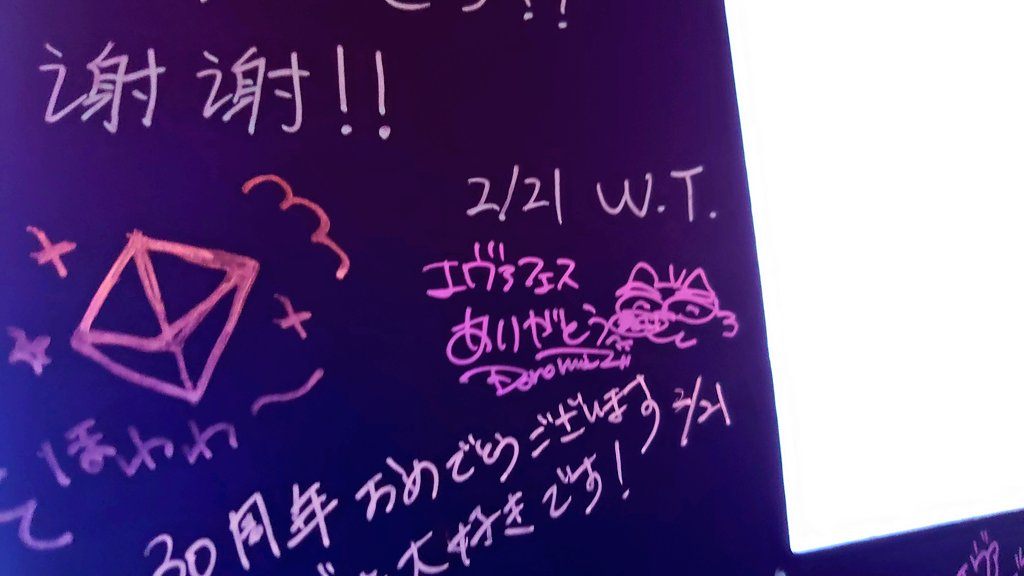 谢谢!!
2/21 W.T.
エヴァフェス
ありがとう
ほわわ
30周年 おめでとうございます 2/21
大好きです!